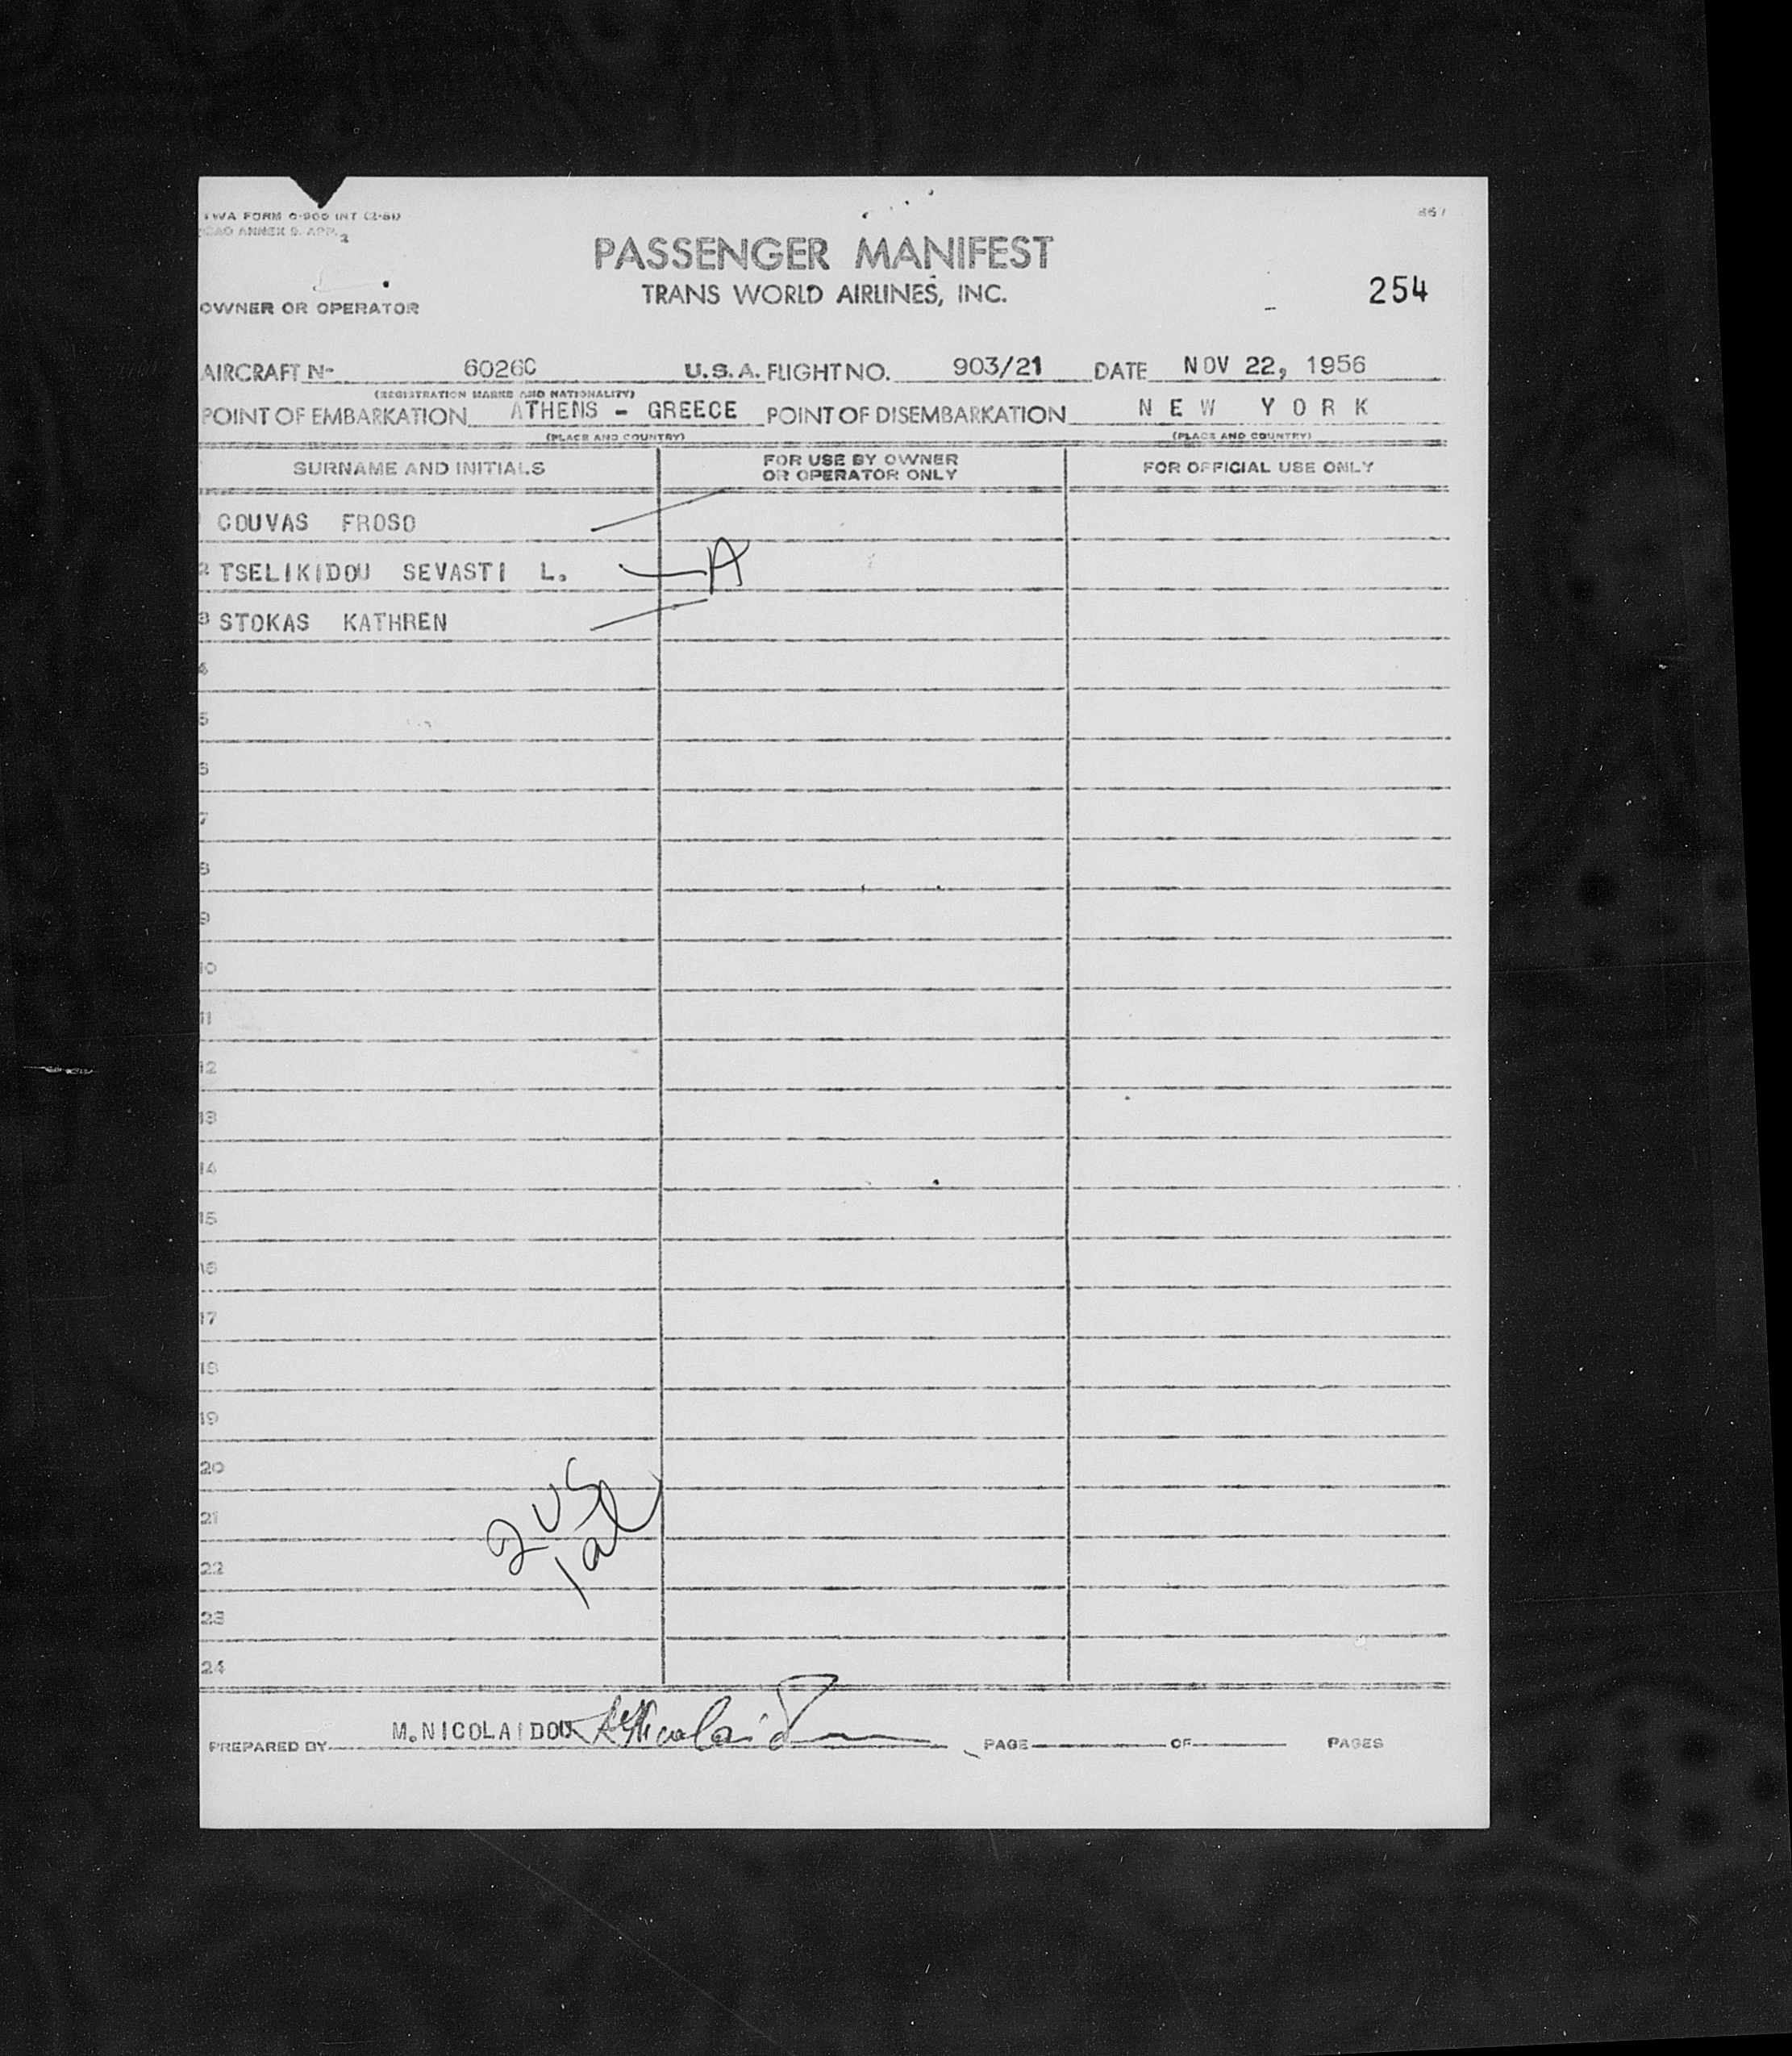 TWA FORM O-900 INT (2-51)
ICAO ANNEX 9. APP. 2
PASSENGER MANIFEST
TRANS WORLD AIRLINES, INC.
254
OWNER OR OPERATOR
AIRCRAFT Nº 6026C U.S.A. FLIGHT NO. 903/21 DATE NOV 22, 1956
(REGISTRATION MARKS AND NATIONALITY)
POINT OF EMBARKATION ATHENS - GREECE POINT OF DISEMBARKATION NEW YORK
(PLACE AND COUNTRY) (PLACE AND COUNTRY)
SURNAME AND INITIALS FOR USE BY OWNER OR OPERATOR ONLY FOR OFFICIAL USE ONLY
COUVAS FROSO
2 TSELIKIDOU SEVASTI L. A
3 STOKAS KATHREN
4
5
6
7
8
9
10
11
12
13
14
15
16
17
18
19
20
21
22
23
24
2 US
1 al
PREPARED BY M.NICOLAIDOU PAGE OF PAGES